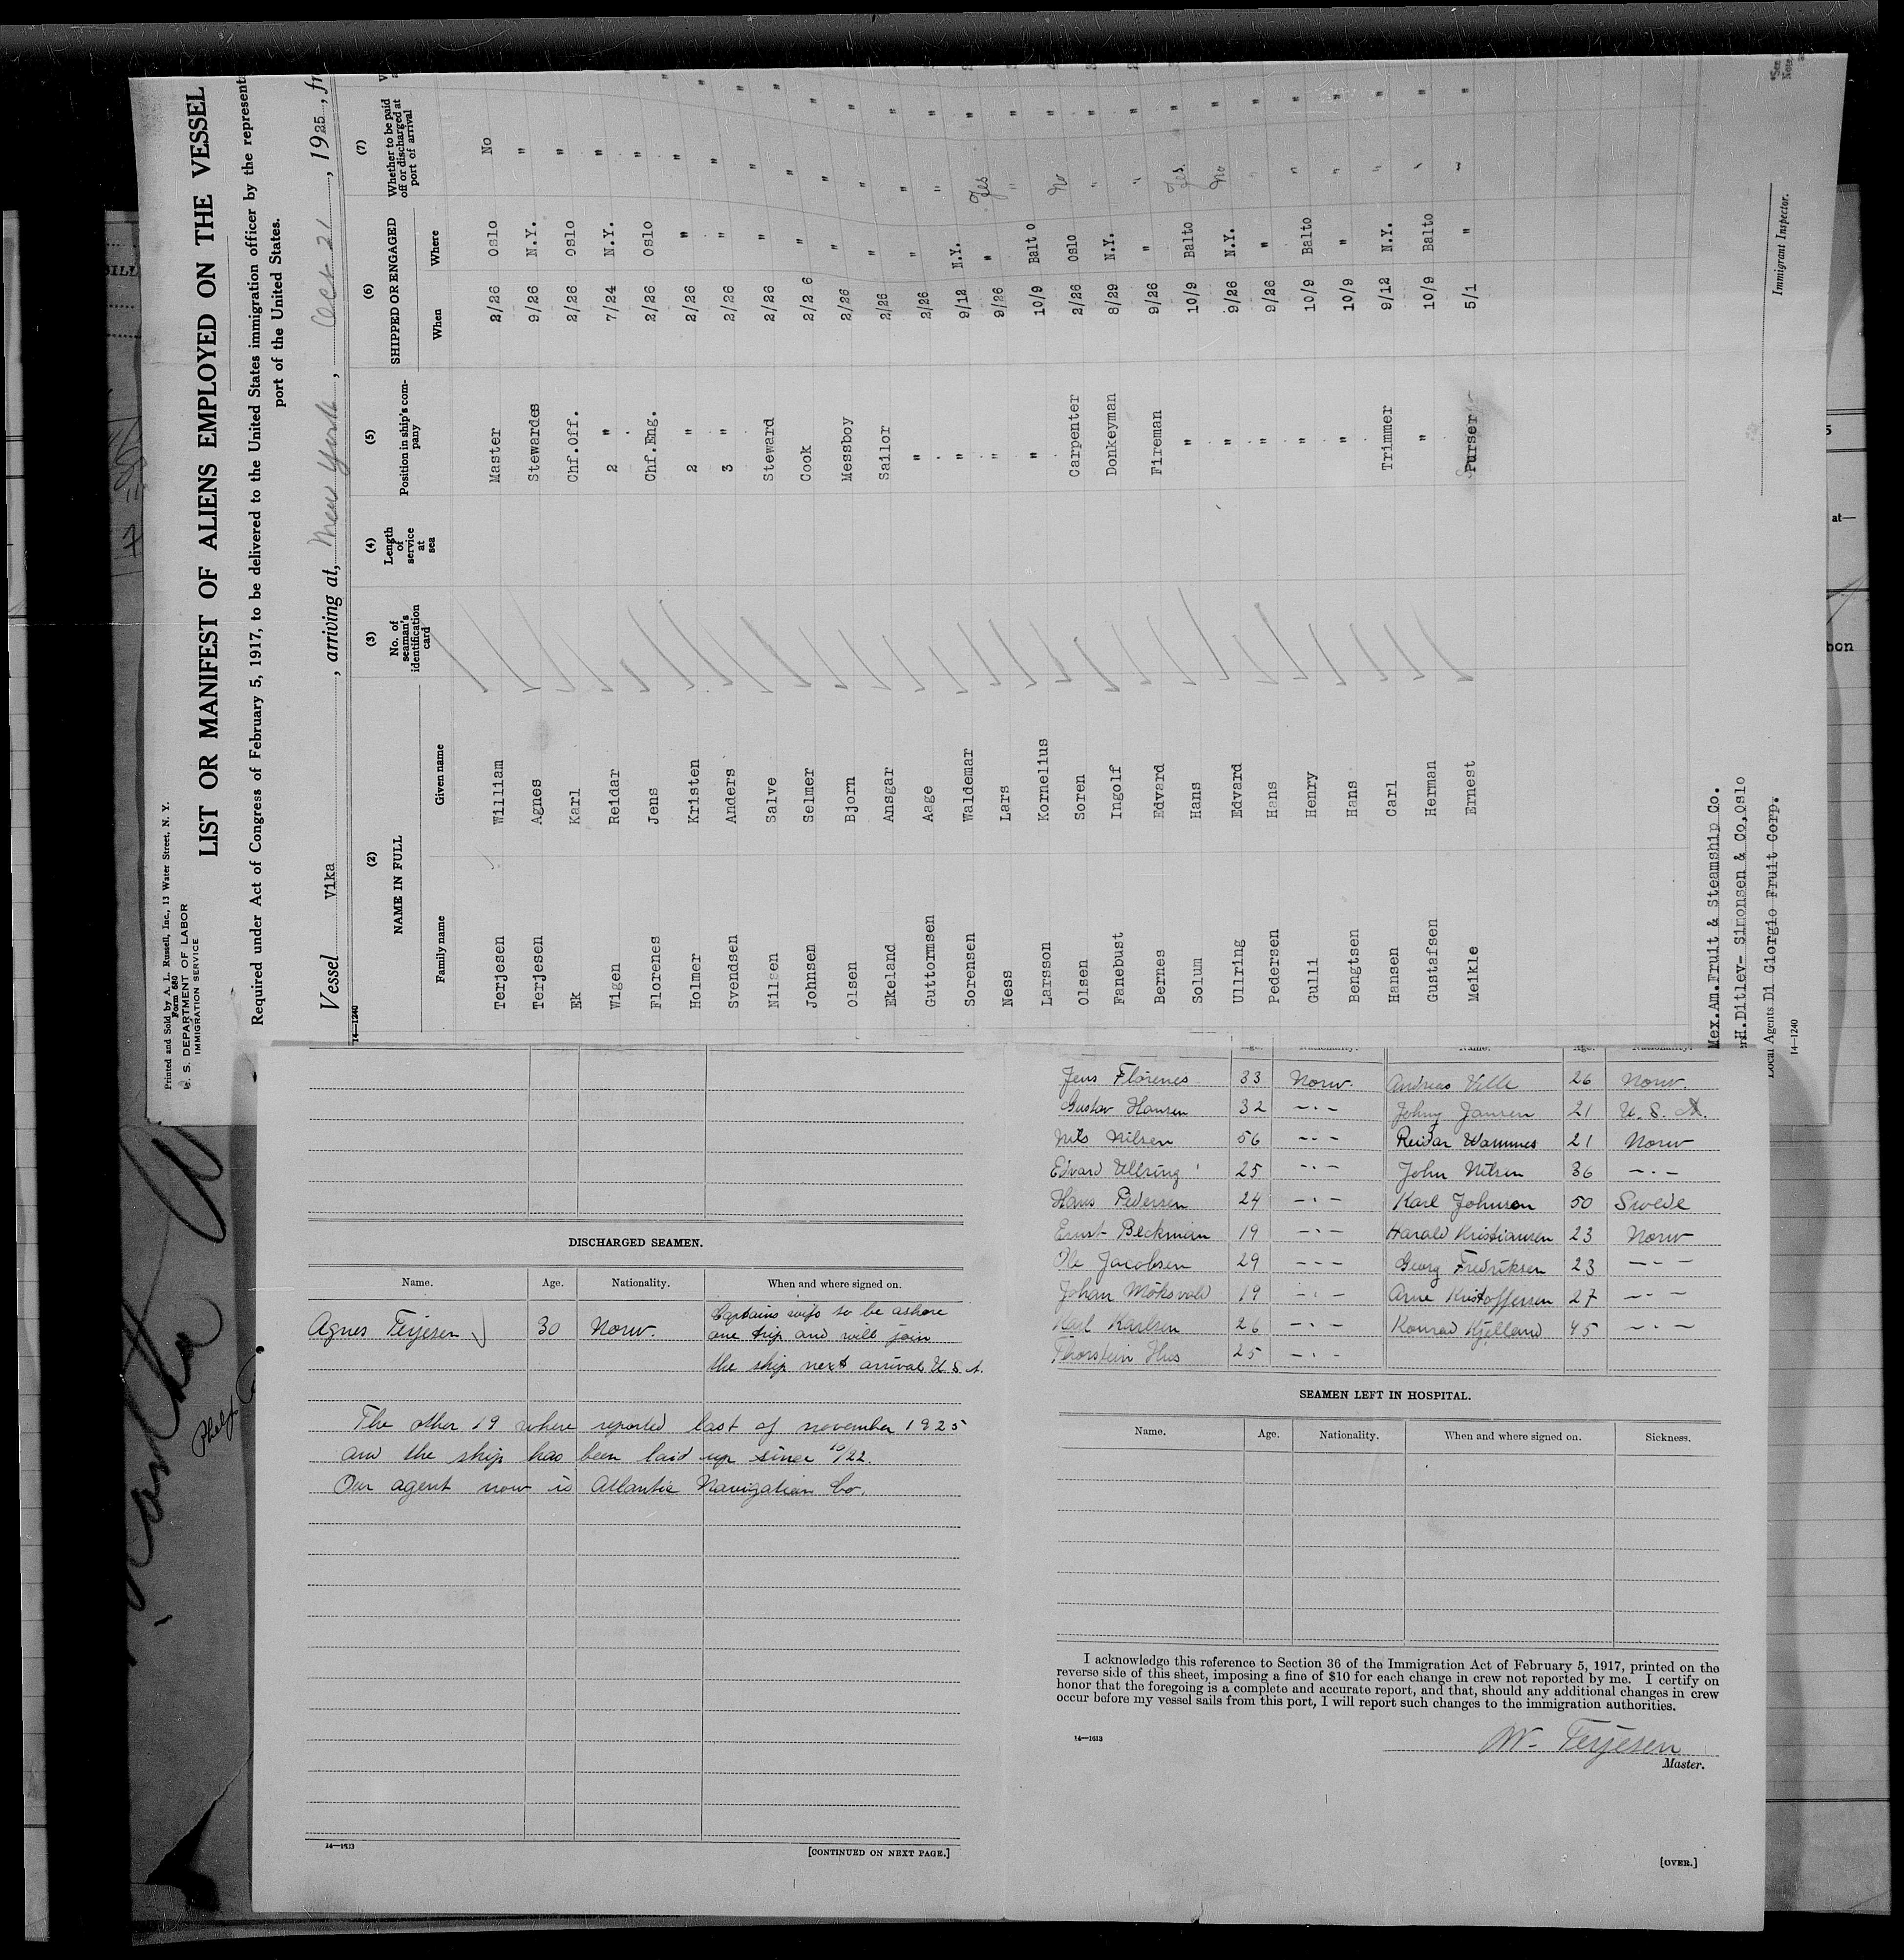 Printed and Sold by A. L. Russell, Inc., 13 Water Street, N. Y.
Form 680
U. S. DEPARTMENT OF LABOR
IMMIGRATION SERVICE
LIST OR MANIFEST OF ALIENS EMPLOYED ON THE VESSEL
Required under Act of Congress of February 5, 1917, to be delivered to the United States immigration officer by the represent
port of the United States.
Vessel Vika, arriving at, New York, Oct 21, 1925, fr
14—1240
(2) (3) (4) (5) (6) (7)
NAME IN FULL No. of seaman's identification card Length of service at sea Position in ship's company SHIPPED OR ENGAGED Whether to be paid off or discharged at port of arrival
Family name Given name When Where
Terjesen William Master 2/26 Oslo No "
Terjesen Agnes Stewardes 9/26 N.Y. " "
Ek Karl Chf.Off. 2/26 Oslo "
Wigen Reidar 2 " 7/24 N.Y. "
Florenes Jens Chf.Eng. 2/26 Oslo " "
Holmer Kristen 2 " 2/26 " " "
Svendsen Anders 3 " 2/26 " " "
Nilsen Salve Steward 2/26 " " "
Johnsen Selmer Cook 2/2 6 " " "
Olsen Bjorn Messboy 2/26 " " "
Ekeland Ansgar Sailor 2/26 " " "
Guttormsen Aage " 2/26 " " "
Sorensen Waldemar " 9/12 N.Y. Yes "
Ness Lars " 9/26 " " "
Larsson Kornelius " 10/9 Balt o No "
Olsen Soren Carpenter 2/26 Oslo " "
Fanebust Ingolf Donkeyman 8/29 N.Y. " "
Bernes Edvard Fireman 9/26 " Yes. "
Solum Hans " 10/9 Balto No "
Ullring Edvard " 9/26 N.Y. " "
Pedersen Hans " 9/26 " " "
Gulli Henry " 10/9 Balto " "
Bengtsen Hans " 10/9 " " "
Hansen Carl Trimmer 9/12 N.Y. " "
Gustafsen Herman " 10/9 Balto " "
Meikle Ernest Purser 5/1 " " "
Mex.Am.Fruit & Steamship Co.
H.Ditlev- Simonsen & Co,Oslo
Local Agents Di Giorgio Fruit Corp.
14—1240
Immigrant Inspector.
*See
Note
at—
bon
DISCHARGED SEAMEN.
Name. Age. Nationality. When and where signed on.
Agnes Terjesen 30 Norw. Captains wife to be ashore
one trip and will join
the ship next arrival U. S. A.
The other 19 where reported last of november 1925
and the ship has been laid up since 10/22.
Our agent now is Atlantic Navigation Co.
14—1613
[CONTINUED ON NEXT PAGE.]
Age. Nationality. Name. Age. Nationality.
Jens Florenes 33 Norw. Andreas Velle 26 Norw.
Gustav Hansen 32 —·— Johny Jansen 21 U. S. A.
Nils Nilsen 56 —·— Reidar Wammes 21 Norw
Edvard Ullring 25 —·— John Nilsen 36 —·—
Hans Pedersen 24 —·— Karl Johnson 50 Swede
Ernst Beckman 19 —·— Harald Kristiansen 23 Norw
Ole Jacobsen 29 —·— Georg Fredriksen 23 —·—
Johan Moksvold 19 —·— Arne Kristoffersen 27 —·—
Karl Karlsen 26 —·— Konrad Kjelland 45 —·—
Thorstein Hus 25 —·—
SEAMEN LEFT IN HOSPITAL.
Name. Age. Nationality. When and where signed on. Sickness.
I acknowledge this reference to Section 36 of the Immigration Act of February 5, 1917, printed on the
reverse side of this sheet, imposing a fine of $10 for each change in crew not reported by me. I certify on
honor that the foregoing is a complete and accurate report, and that, should any additional changes in crew
occur before my vessel sails from this port, I will report such changes to the immigration authorities.
14—1613
W. Terjesen
Master.
[OVER.]